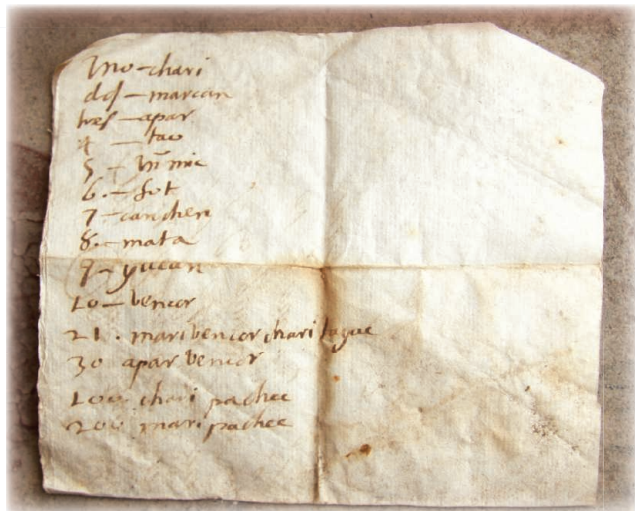 Uno - chari
dos - marcan
tres - apar
4 - tau
5. - himic
6. - sut
7 - canchen
8. - mata
9 - yucan
10 - bencor
21. maribencor chari tayue
30 apar bencor
100 chari pachac
200 mari pachac